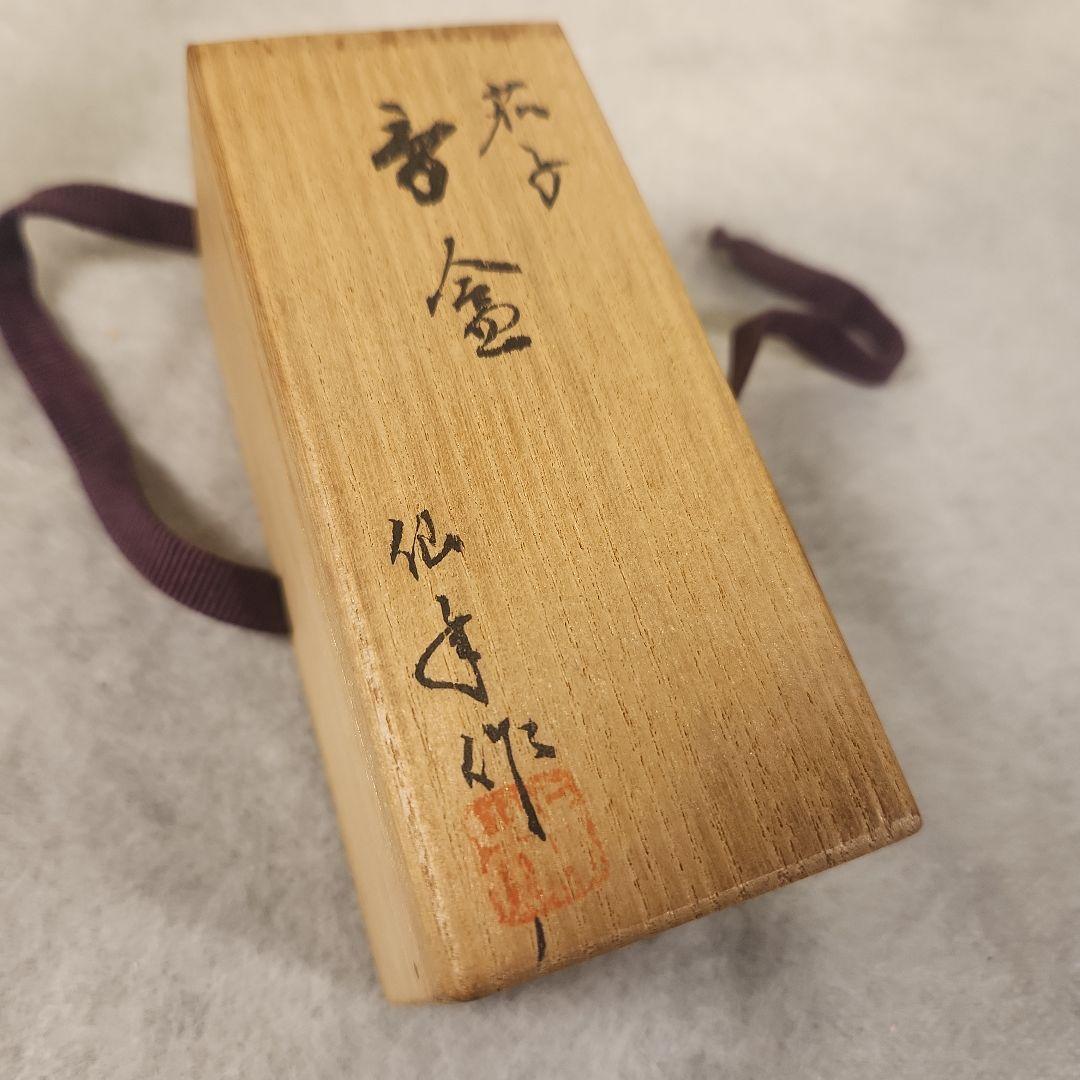 茄子
香盒
仙年作